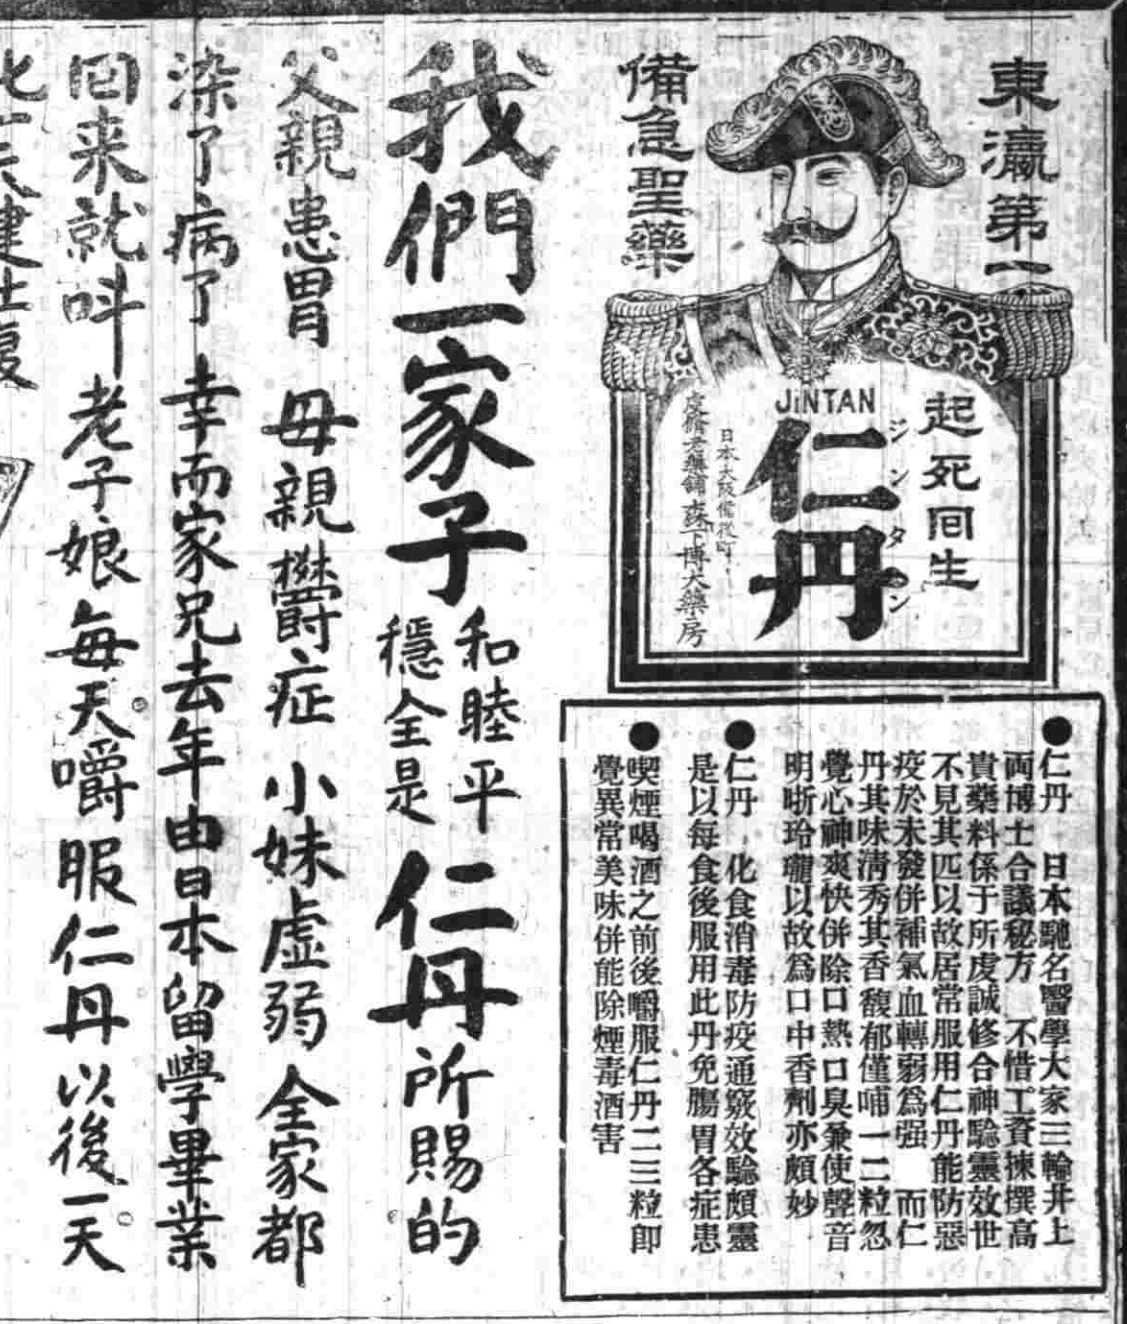 東瀛第一
備急聖藥
起死回生
JINTAN
仁丹
ジンタン
日本大阪備後町
虔修老藥舖 森下博大藥房
●仁丹 日本馳名醫學大家三輪井上
両博士合議秘方 不惜工資揀撰高
貴藥料係于所虔誠修合神驗靈效世
不見其匹以故居常服用仁丹能防惡
疫於未發併補氣血轉弱爲强 而仁
丹其味淸秀其香馥郁僅哺一二粒忽
覺心神爽快併除口熱口臭兼使聲音
明晰玲瓏以故爲口中香劑亦頗妙
●仁丹 化食消毒防疫通竅效驗頗靈
是以每食後服用此丹免腸胃各症患
●喫煙喝酒之前後嚼服仁丹二三粒卽
覺異常美味併能除煙毒酒害
我們一家子
和睦平
穩全是
仁丹所賜的
父親患胃 母親欝症 小妹虚弱 全家都
染了病了 幸而家兄去年由日本留學畢業
回来就呌老子娘每天嚼服仁丹以後一天